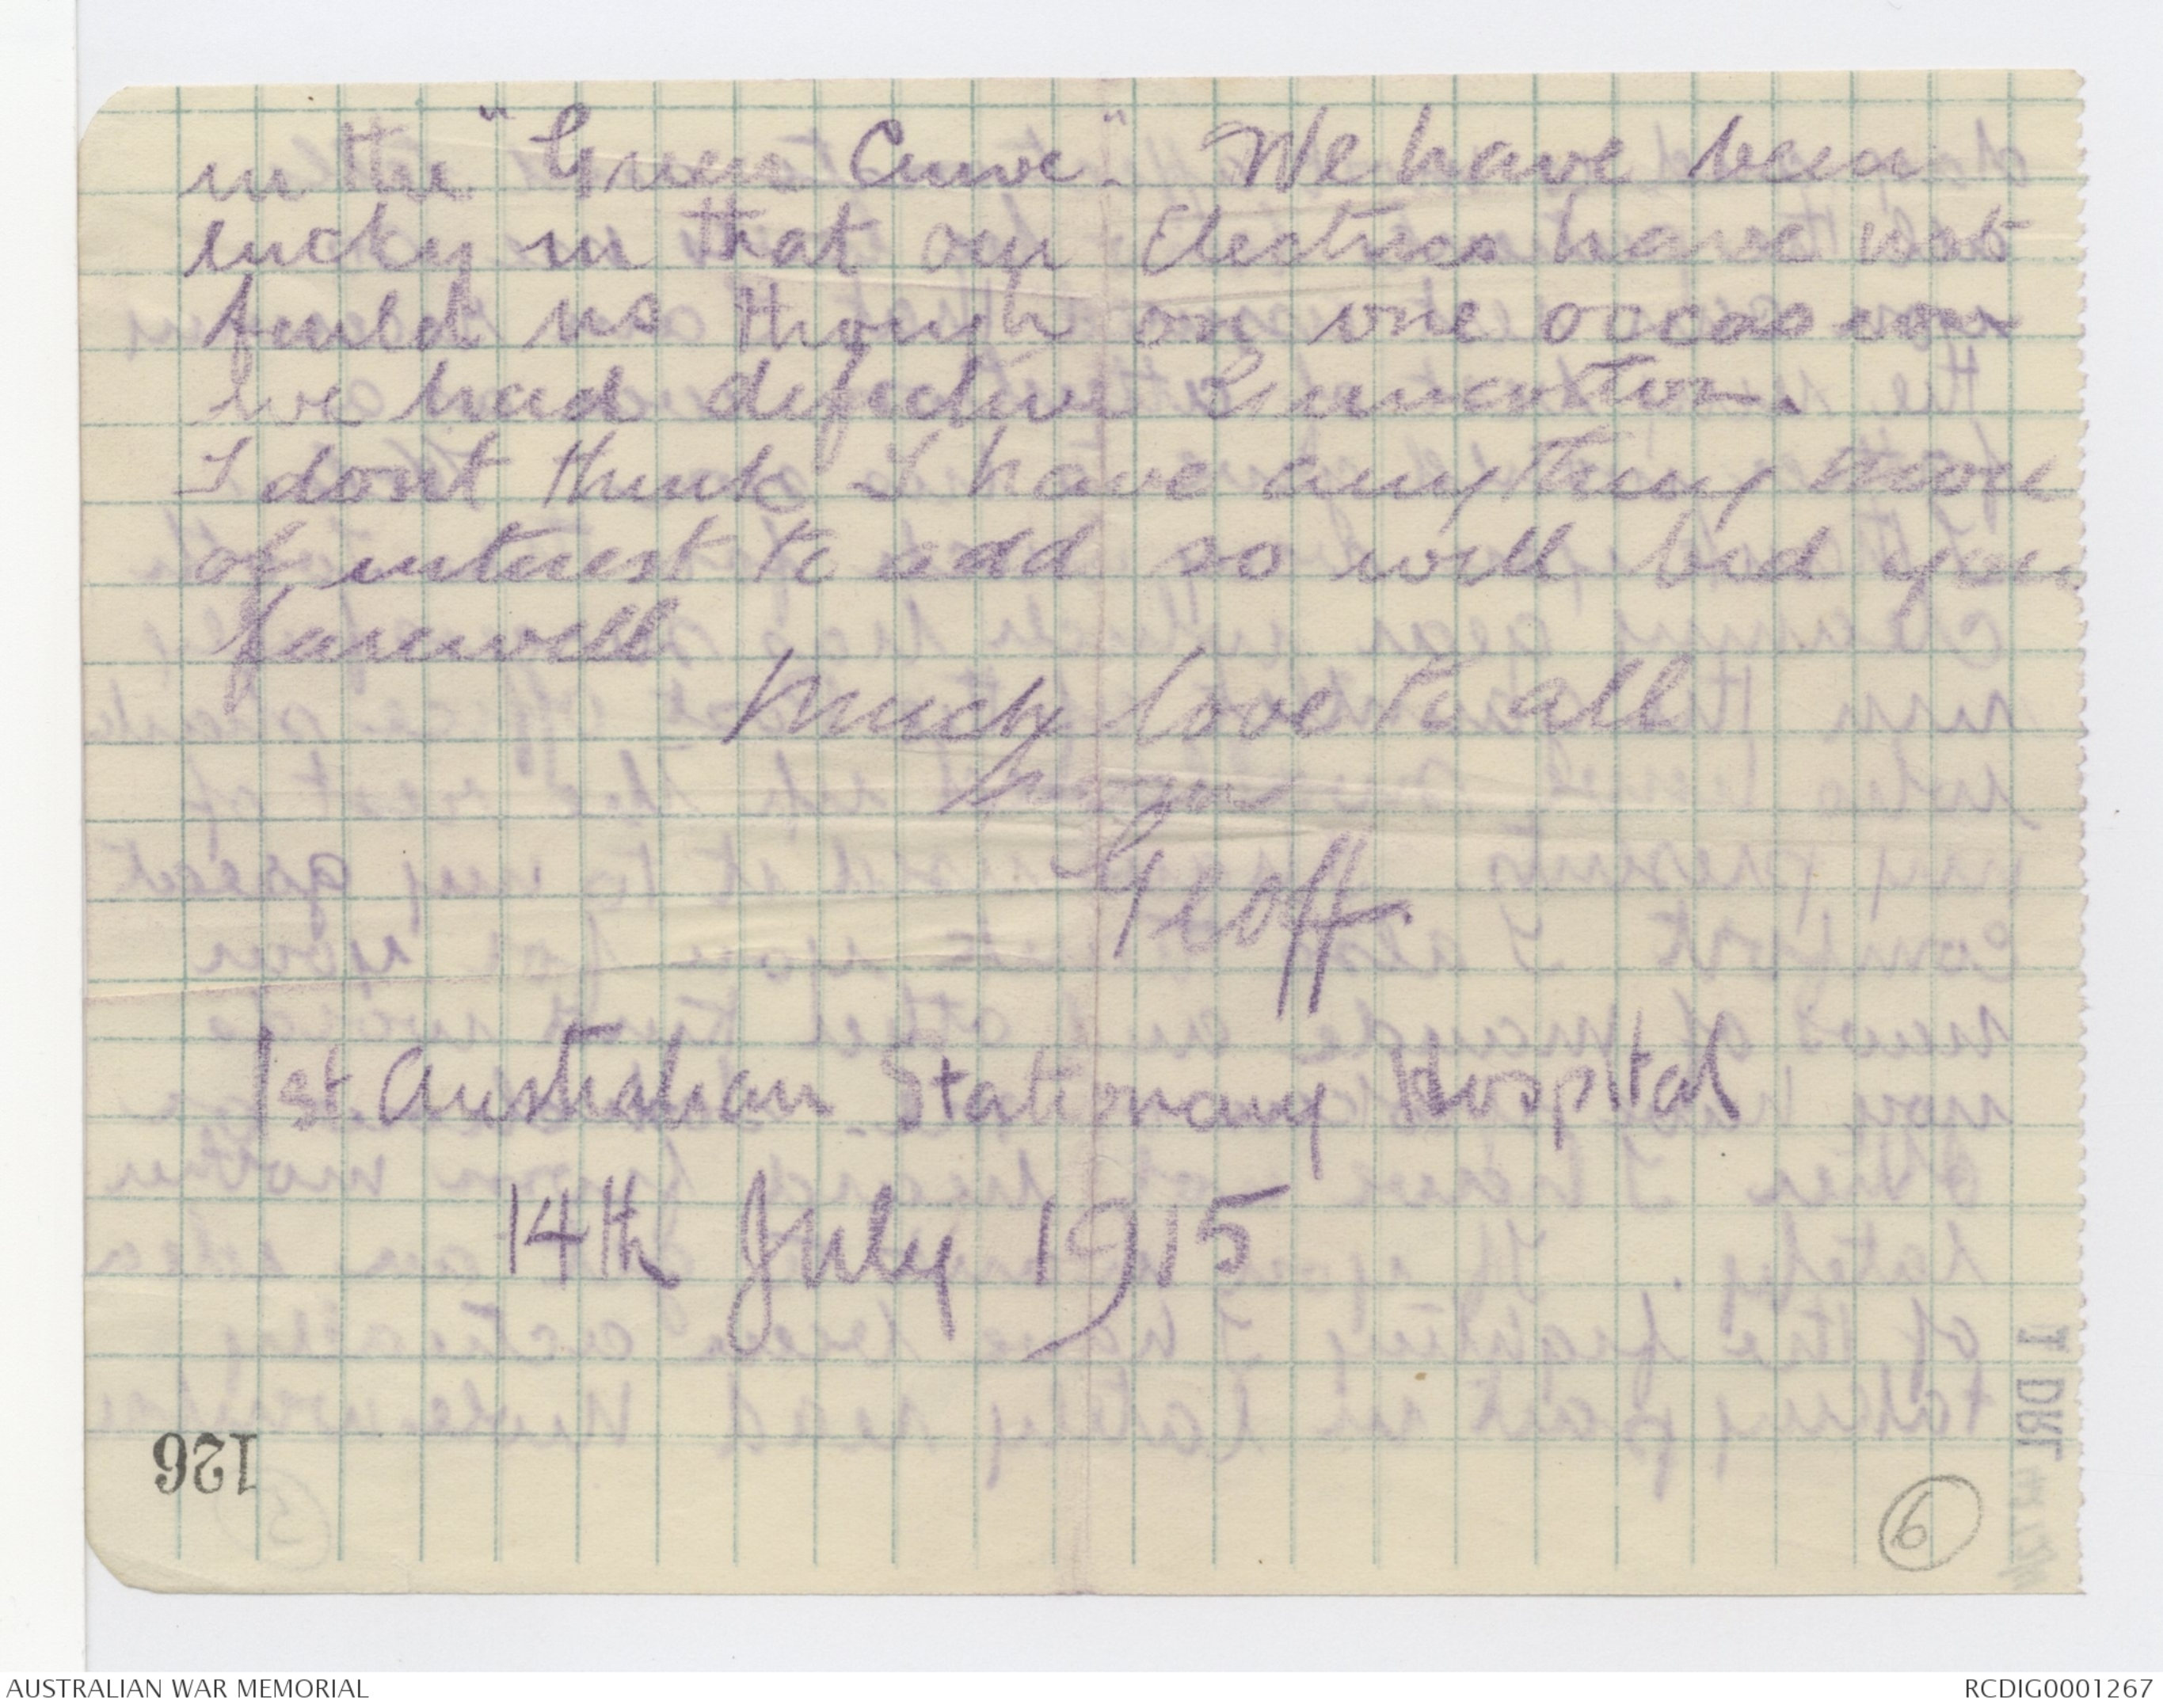 in the "Green Curve". We have been
lucky in that our Electrics have not
failed us though on one occasion
we had defective
I dont think I have anything more
of interest to add so will bid you
farewell
Much love to all
from your
Geoff.
1st Australian Stationary Hospital
14th July 1915
126
6
AUSTRALIAN WAR MEMORIAL
RCDIG0001267